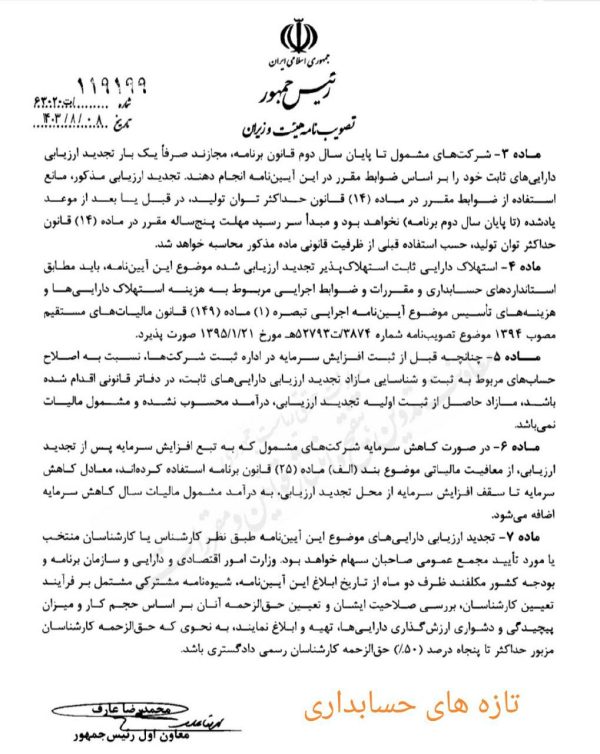 جمهوری اسلامی ایران
رئیس جمهور
تصویب نامه هیئت وزیران
۱۱۹۱۹۹
شماره .........../ت۶۳۰۲۰هـ
تاریخ ۱۴۰۳/۸/۰۸
ماده ۳- شرکت‌های مشمول تا پایان سال دوم قانون برنامه، مجازند صرفاً یک بار تجدید ارزیابی
دارایی‌های ثابت خود را بر اساس ضوابط مقرر در این آیین‌نامه انجام دهند. تجدید ارزیابی مذکور، مانع
استفاده از ضوابط مقرر در ماده (۱۴) قانون حداکثر توان تولید، در قبل یا بعد از موعد
یادشده (تا پایان سال دوم برنامه) نخواهد بود و مبدأ سر رسید مهلت پنج‌ساله مقرر در ماده (۱۴) قانون
حداکثر توان تولید، حسب استفاده قبلی از ظرفیت قانونی ماده مذکور محاسبه خواهد شد.
ماده ۴- استهلاک دارایی ثابت استهلاک‌پذیر تجدید ارزیابی شده موضوع این آیین‌نامه، باید مطابق
استانداردهای حسابداری و مقررات و ضوابط اجرایی مربوط به هزینه استهلاک دارایی‌ها و
هزینه‌های تأسیس موضوع آیین‌نامه اجرایی تبصره (۱) ماده (۱۴۹) قانون مالیات‌های مستقیم
مصوب ۱۳۹۴ موضوع تصویب‌نامه شماره ۳۸۷۴/ت۵۲۷۹۳هـ مورخ ۱۳۹۵/۱/۲۱ صورت پذیرد.
ماده ۵- چنانچه قبل از ثبت افزایش سرمایه در اداره ثبت شرکت‌ها، نسبت به اصلاح
حساب‌های مربوط به ثبت و شناسایی مازاد تجدید ارزیابی دارایی‌های ثابت، در دفاتر قانونی اقدام شده
باشد، مازاد حاصل از ثبت اولیه تجدید ارزیابی، درآمد محسوب نشده و مشمول مالیات
نمی‌باشد.
ماده ۶- در صورت کاهش سرمایه شرکت‌های مشمول که به تبع افزایش سرمایه پس از تجدید
ارزیابی، از معافیت مالیاتی موضوع بند (الف) ماده (۲۵) قانون برنامه استفاده کرده‌اند، معادل کاهش
سرمایه تا سقف افزایش سرمایه از محل تجدید ارزیابی، به درآمد مشمول مالیات سال کاهش سرمایه
اضافه می‌شود.
ماده ۷- تجدید ارزیابی دارایی‌های موضوع این آیین‌نامه طبق نظر کارشناس یا کارشناسان منتخب
یا مورد تأیید مجمع عمومی صاحبان سهام خواهد بود. وزارت امور اقتصادی و دارایی و سازمان برنامه و
بودجه کشور مکلفند ظرف دو ماه از تاریخ ابلاغ این آیین‌نامه، شیوه‌نامه مشترکی مشتمل بر فرآیند
تعیین کارشناسان، بررسی صلاحیت ایشان و تعیین حق‌الزحمه آنان بر اساس حجم کار و میزان
پیچیدگی و دشواری ارزش‌گذاری دارایی‌ها، تهیه و ابلاغ نمایند، به نحوی که حق‌الزحمه کارشناسان
مزبور حداکثر تا پنجاه درصد (۵۰٪) حق‌الزحمه کارشناسان رسمی دادگستری باشد.
محمدرضا عارف
معاون اول رئیس‌جمهور
تازه های حسابداری